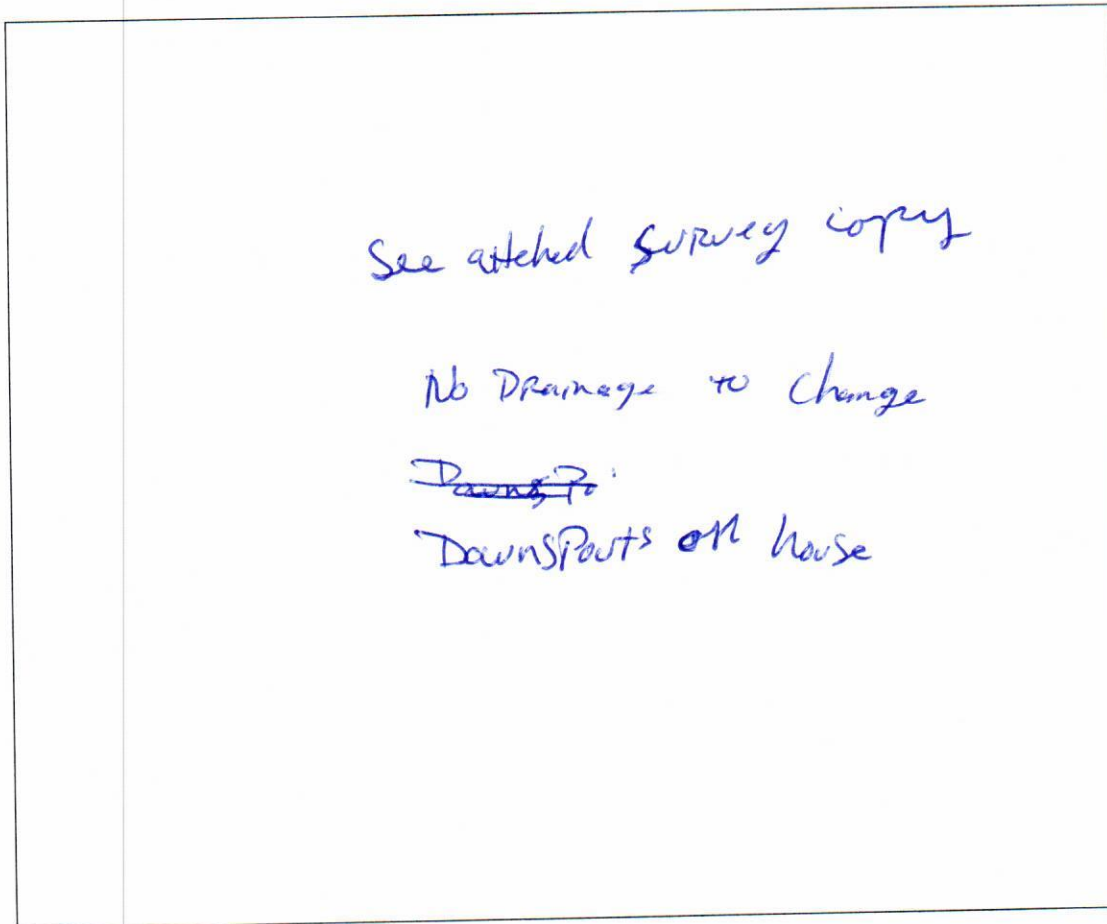 See attched survey copy
No Drainage to Change
Downspo
DownSpouts off house